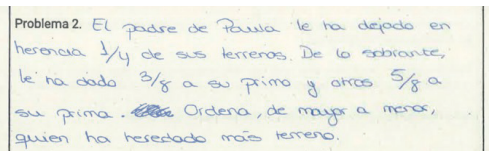 Problema 2. El padre de Paula le ha dejado en
herencia 1/4 de sus terrenos. De lo sobrante,
le ha dado 3/8 a su primo y otros 5/8 a
su prima. Ordena, de mayor a menor,
quien ha heredado más terreno.